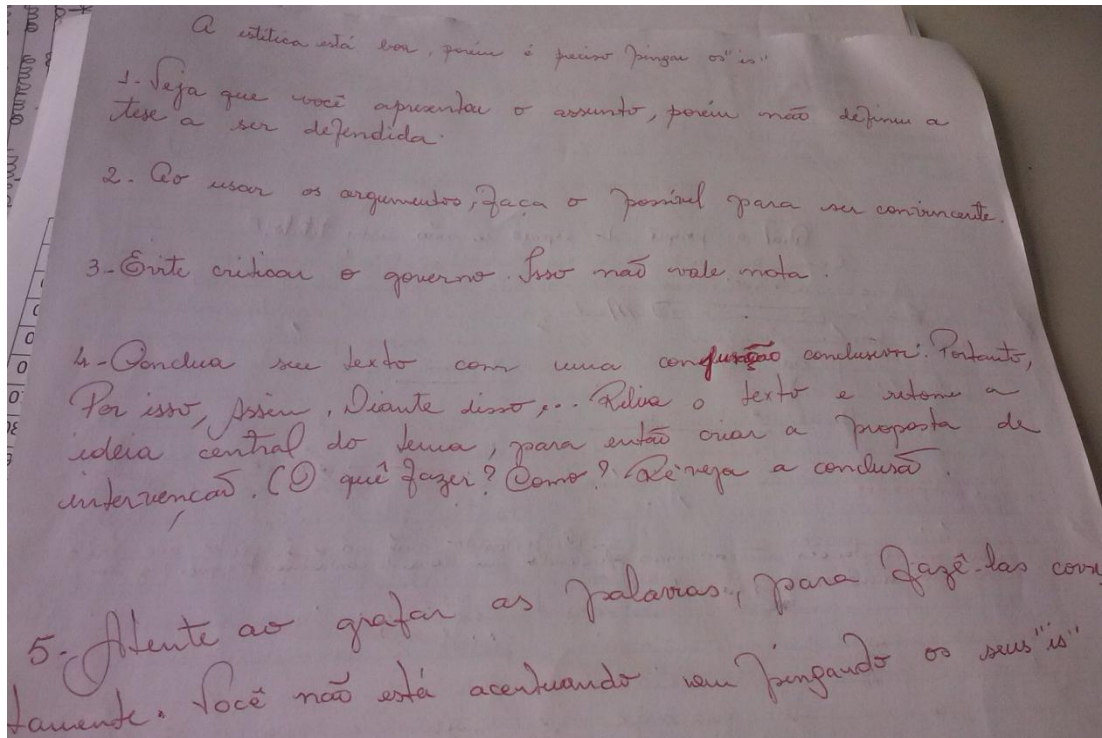 A estética está boa, porém é preciso pingar os "is"
1- Veja que você apresentou o assunto, porém não definiu a
tese a ser defendida.
2- Ao usar os argumentos, faça o possível para ser convincente.
3- Evite criticar o governo. Isso não vale nota.
4- Conclua seu texto com uma conjunção conclusiva: Portanto,
Por isso, Assim, Diante disso,... Releia o texto e retome a
ideia central do tema, para então criar a proposta de
intervenção. (O quê fazer? Como? Reveja a conclusão.
5- Atente ao grafar as palavras, para fazê-las corre
tamente. Você não está acentuando nem pingando os seus "is"